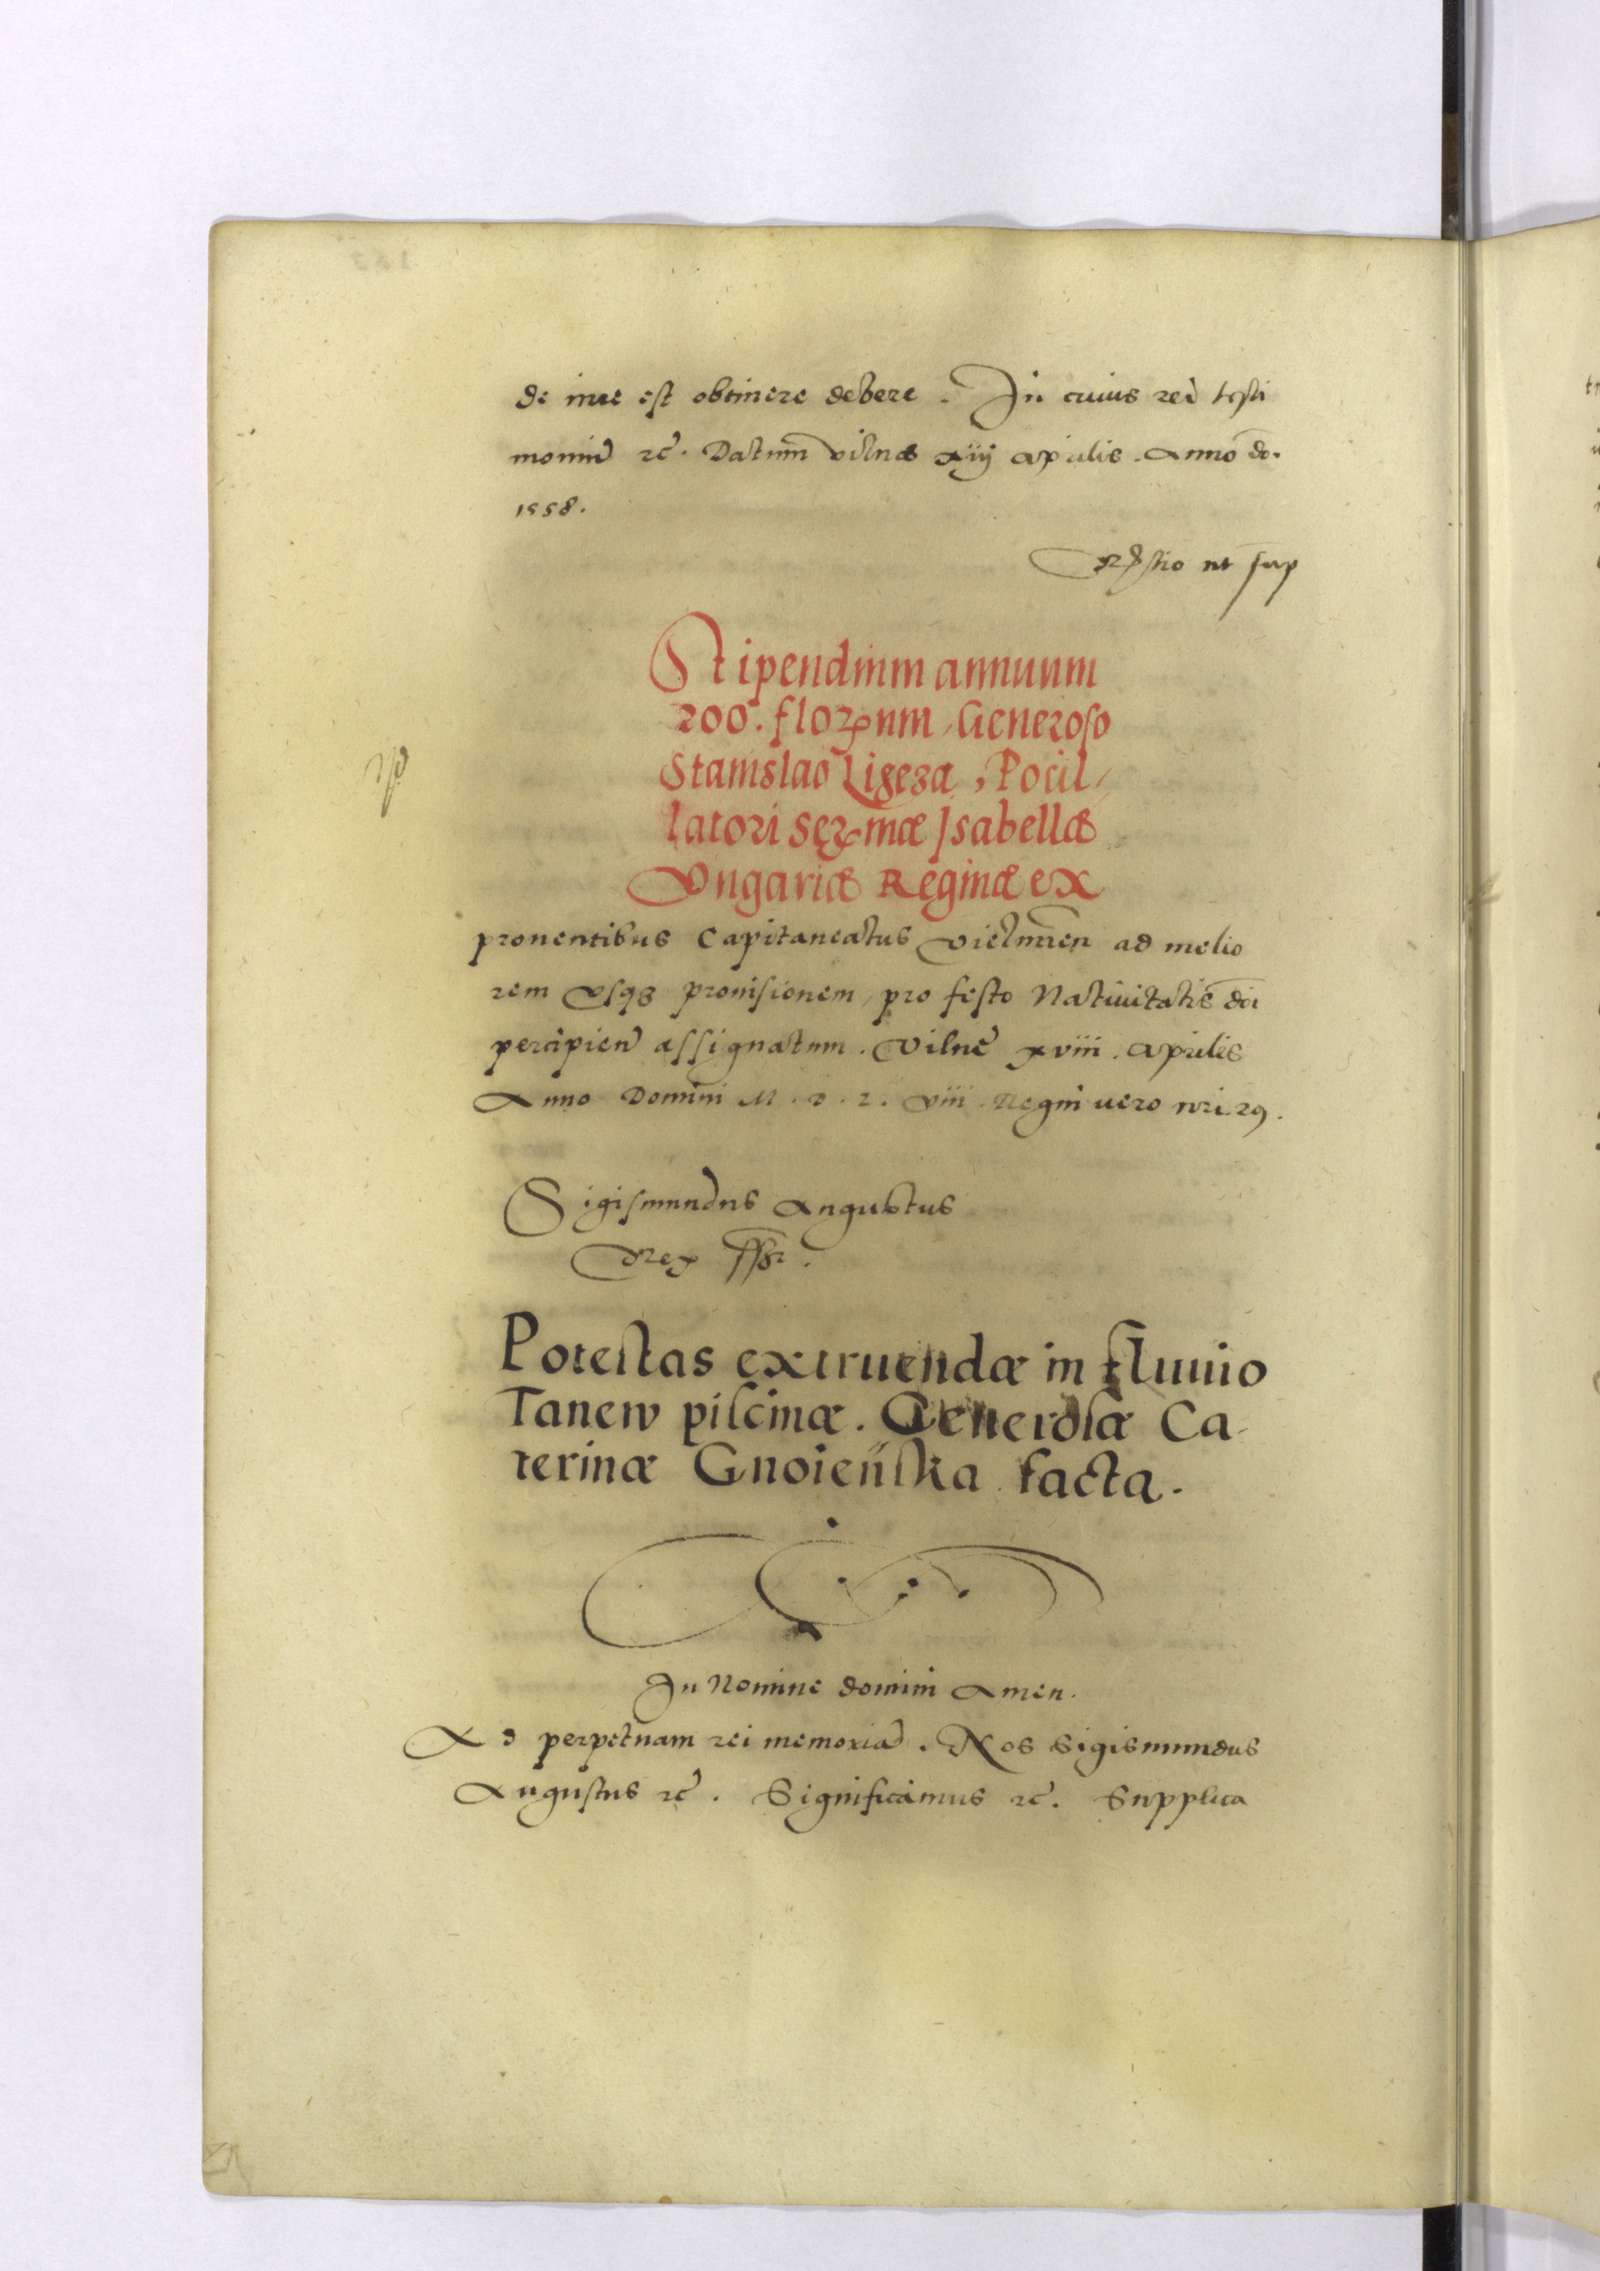 de iure est obtinere debere. In cuius rei testi
moniũ ꝛc̃. Datum vilnæ xiij aprilis. Anno do.
1558.
ut sup
Stipendium annuum
200. floꝝenum, Generoso
Stanislao Ligeza, Pocil,
latori Seꝝmæ Isabellæ
Vngariæ Reginæ ex
prouentibus Capitaneatus vielunień ad melio
rem Vsqꝫ prouisionem, pro festo Natiuitatis dni
percipień assignatum. Vilnę xviii. Aprilis
Anno Domini M. D. L. viii. Regni uero nri. 29.
Sigismundus Augustus
Rex sst.
Potestas extruendæ in fluuio
Tanew piscinæ. Generosæ Ca-
terinæ Gnoieńska facta.
In Nomine domini Amen.
Ad perpetuam rei memoriã. Nos Sigismundus
Augustus ꝛc̃. Significamus ꝛc̃. Supplica